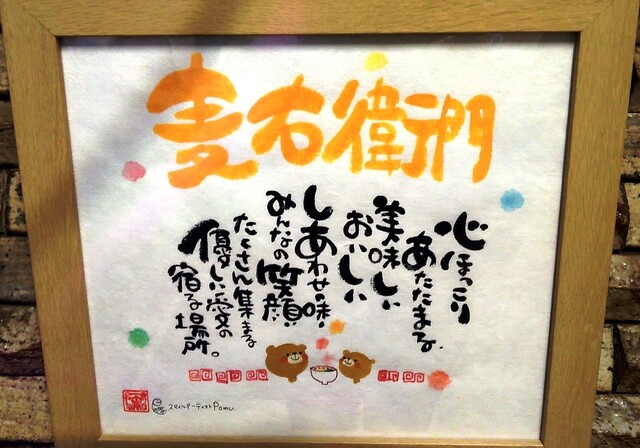 麦右衛門
心ほっこり
あたたまる
美味しい
おいしい
しあわせの味
みんなの笑顔
たくさん集まる
優しい愛の
宿る場所。
スマイルアーティストPomu.